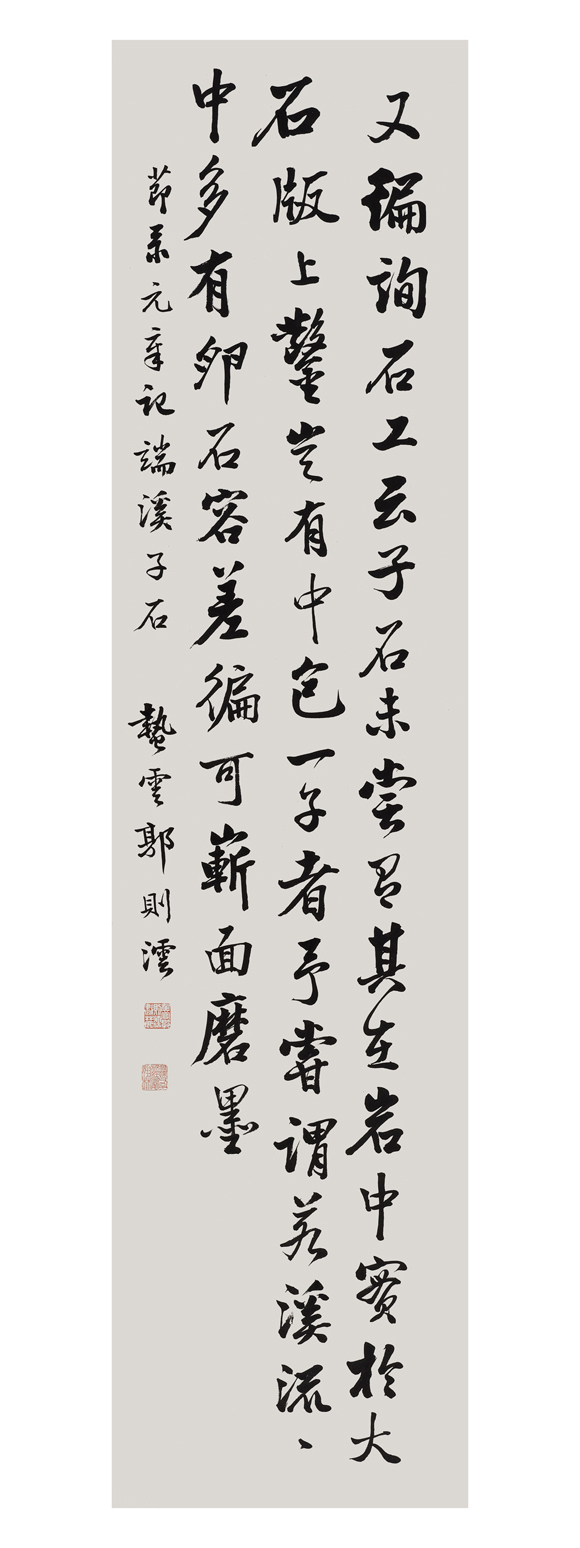 又徧詢石工云子石未嘗有其在岩中實於大
石版上鑿豈有中包一子者予嘗謂若溪流、
中多有卵石容差徧可嶄面磨墨
節米元章記端溪子石　蟄雲郭則澐